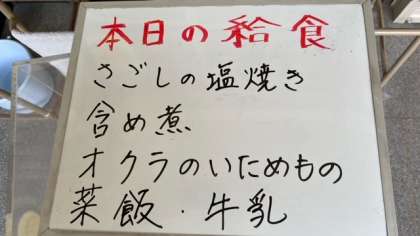 本日の給食
さごしの塩焼き
含め煮
オクラのいためもの
菜飯・牛乳